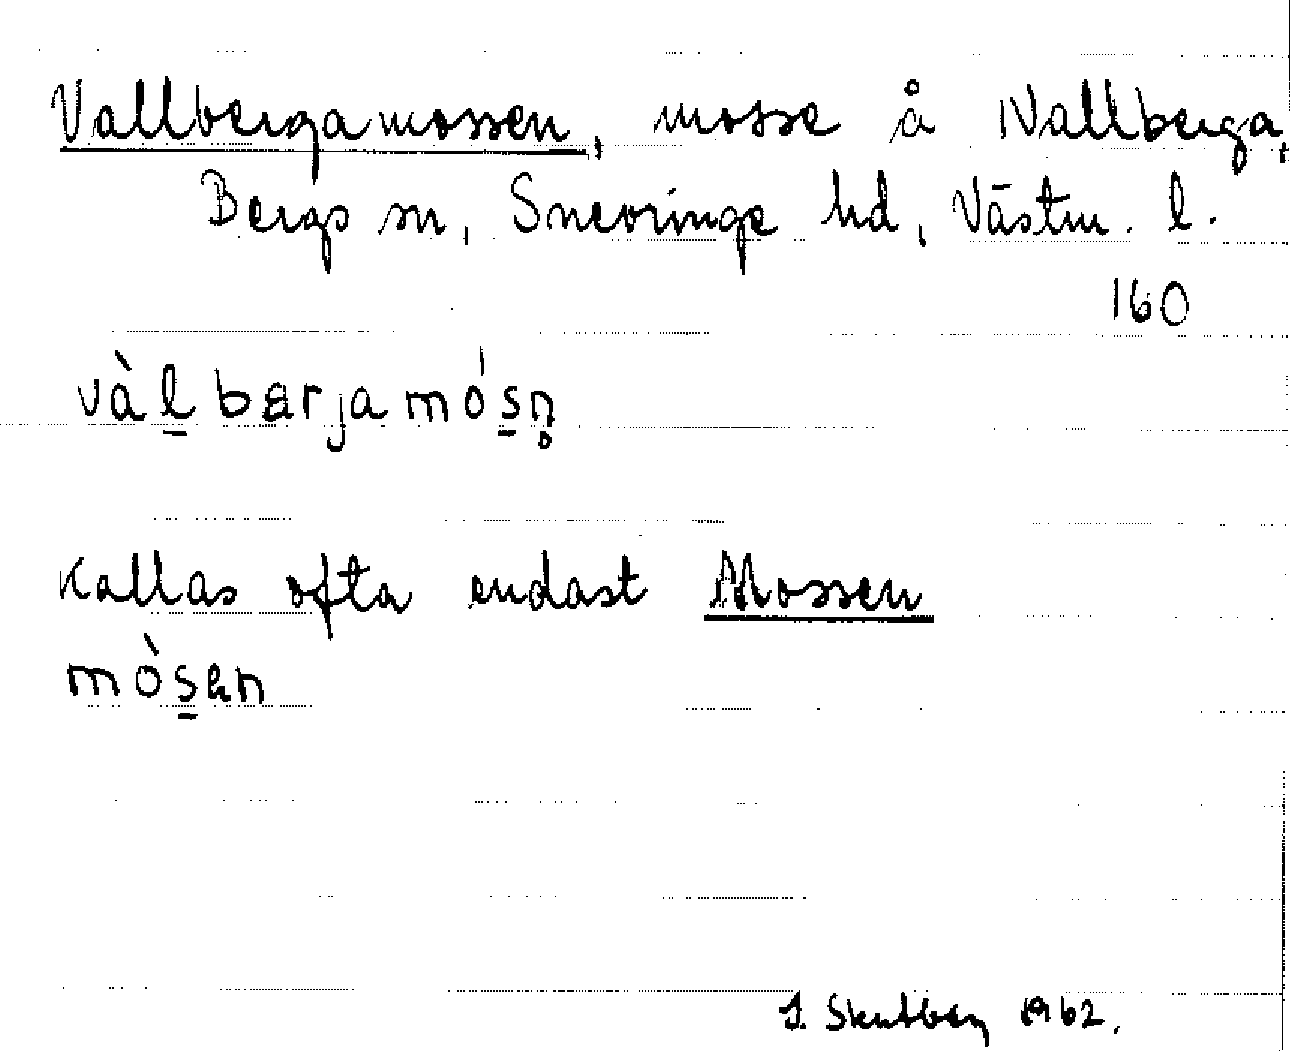 Vallbergamossen, mosse å Vallberga,
Bergs sn, Snevringe hd, Västm. l.
160
vàlbarjamósn̥
Kallas ofta endast Mossen
mòsen
J. 1962.